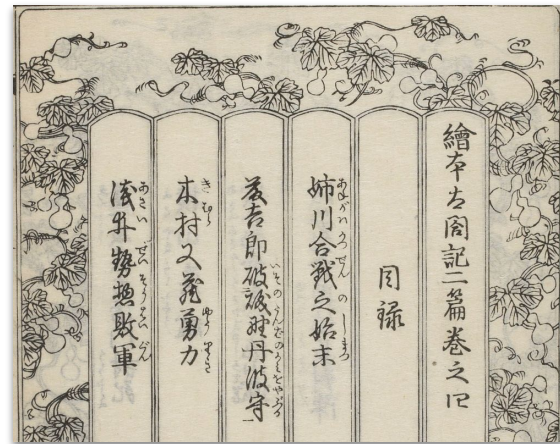 繪本太閤記二篇巻之四
目録
姉川合戰之始末
藤吉郎破磯野丹波守
木村又蔵勇力
浅井勢惣敗軍